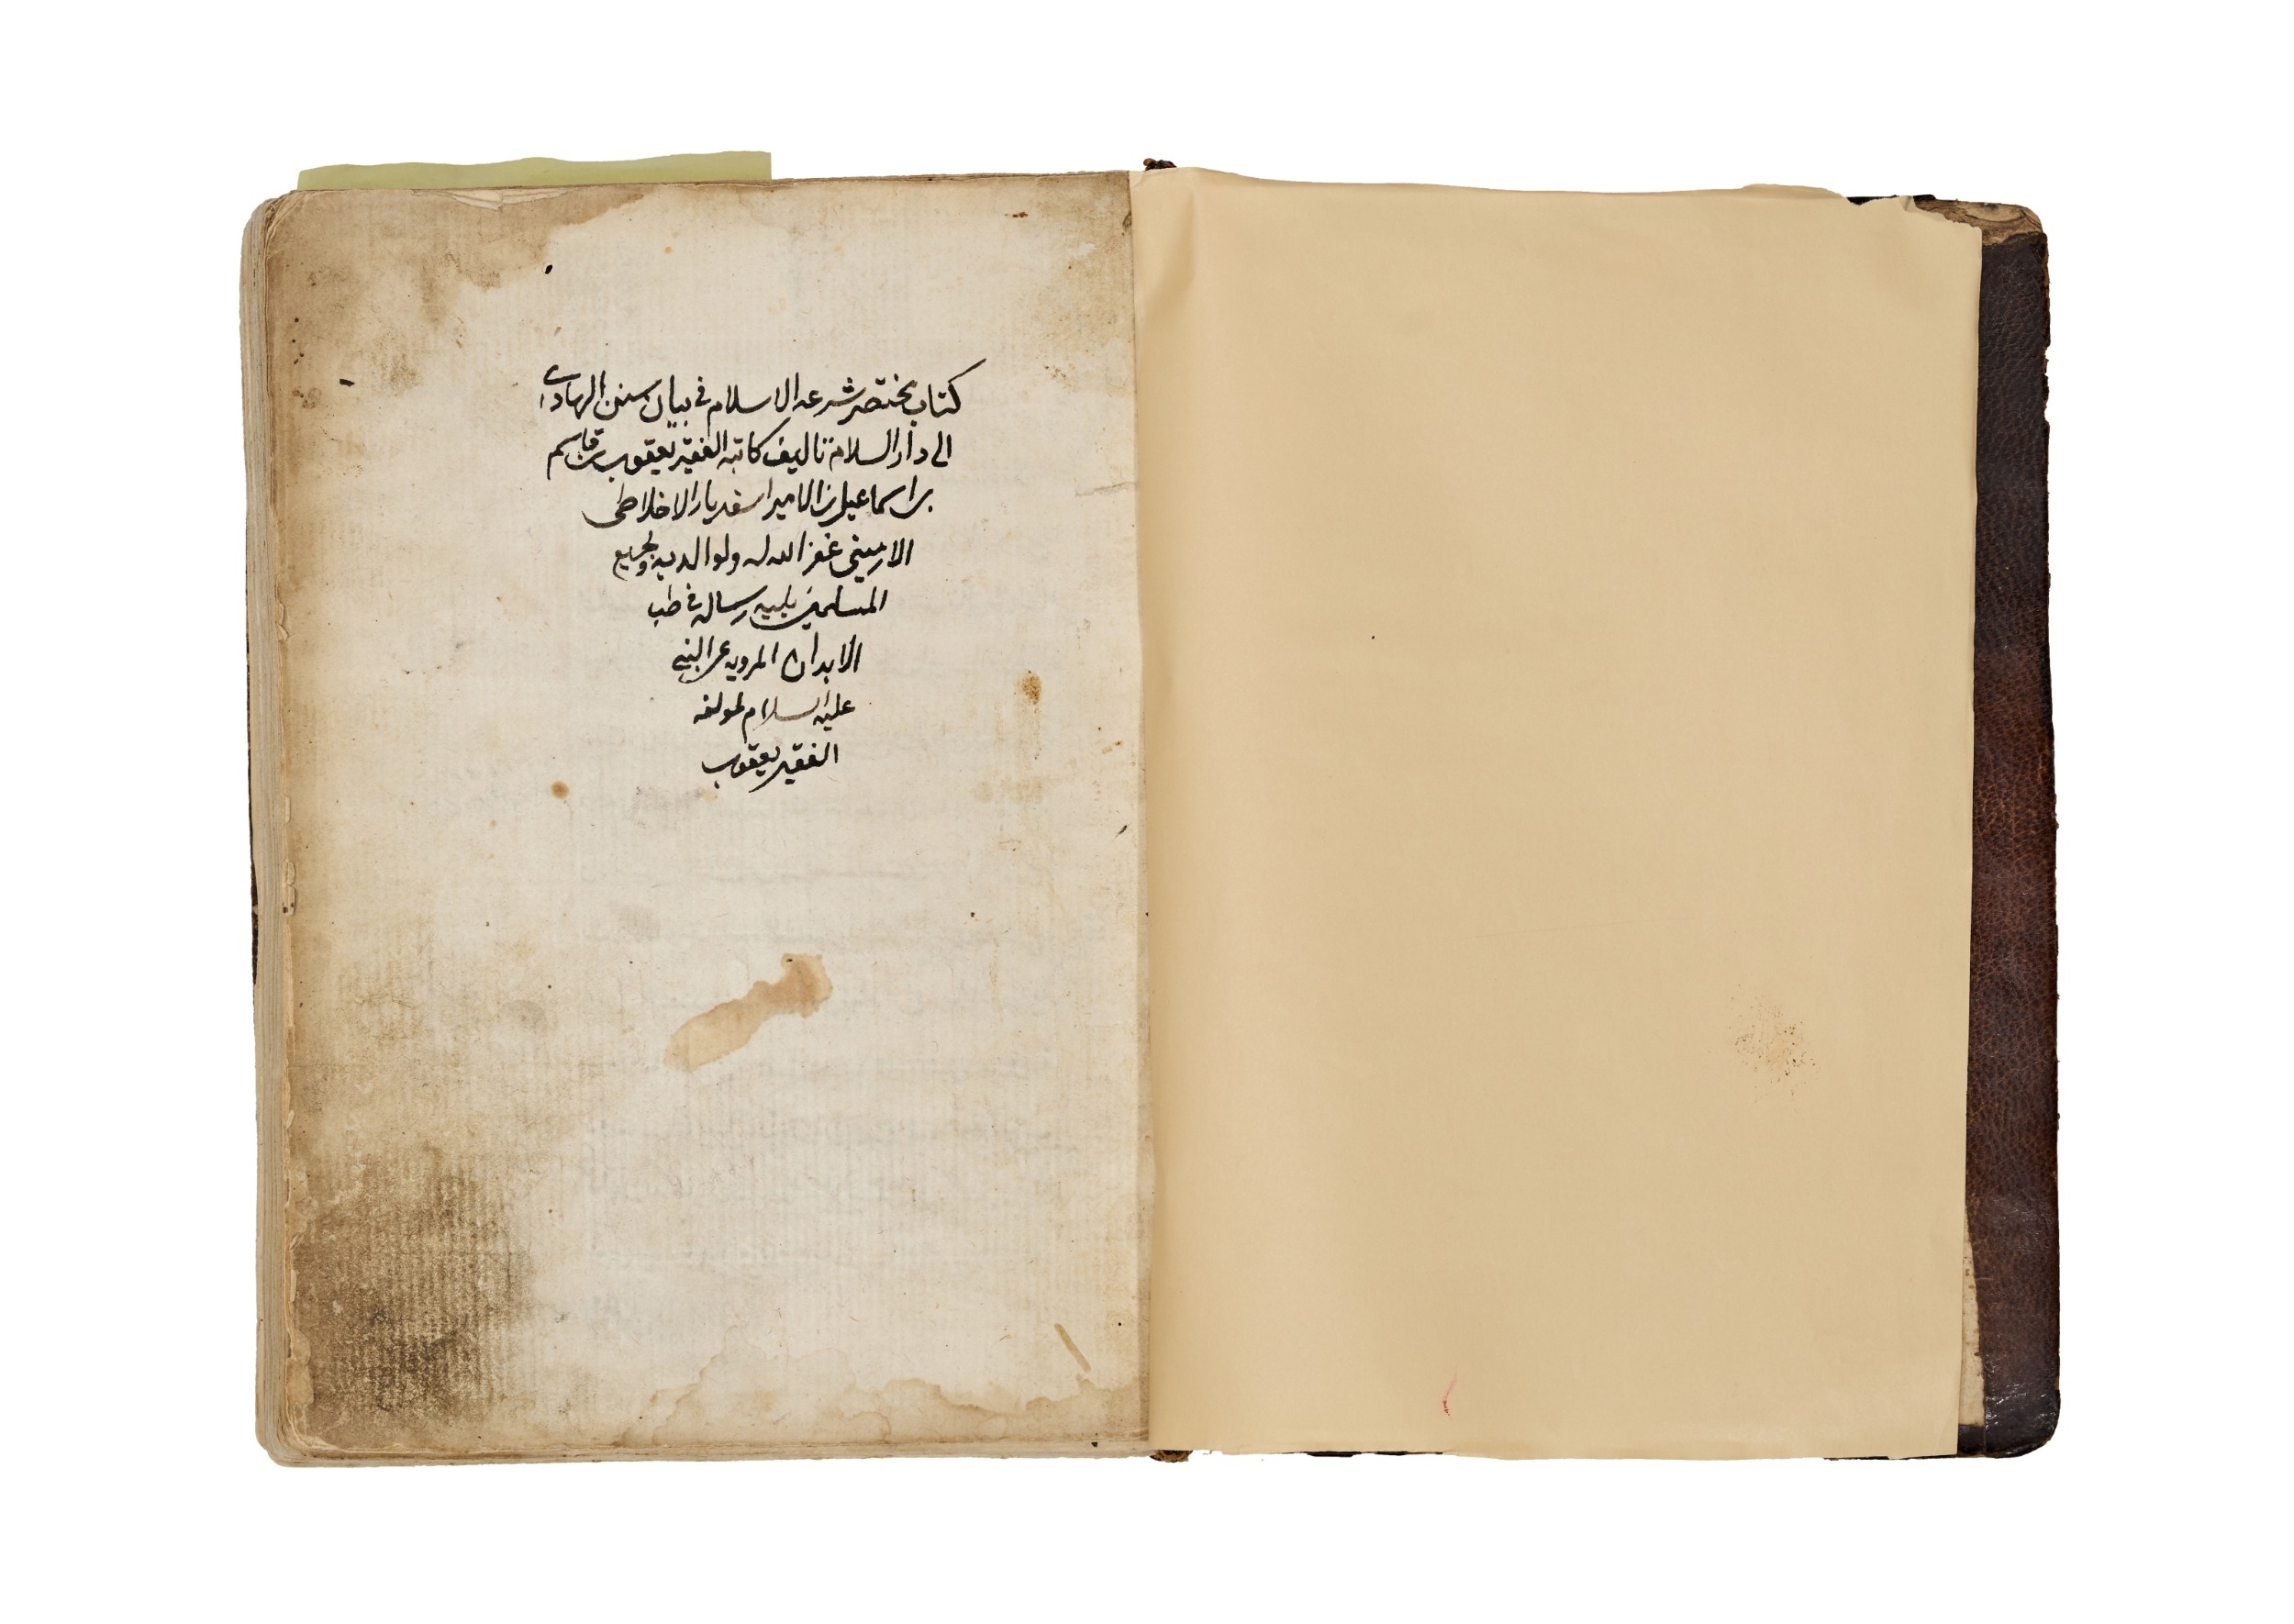 كتاب مختصر شرعه الاسلام فى بيان سنن الهادى
الى دار السلام تاليف كاتبه الفقير يعقوب بن قاسم
بن اسماعيل بن الامير اسفديار الاخلاطى
الارمينى غفر الله له ولوالديه ولجميع
المسلمين يليه رساله فى طب
الابدان المرويه عن النبى
عليه السلام لمولفه
الفقير يعقوب